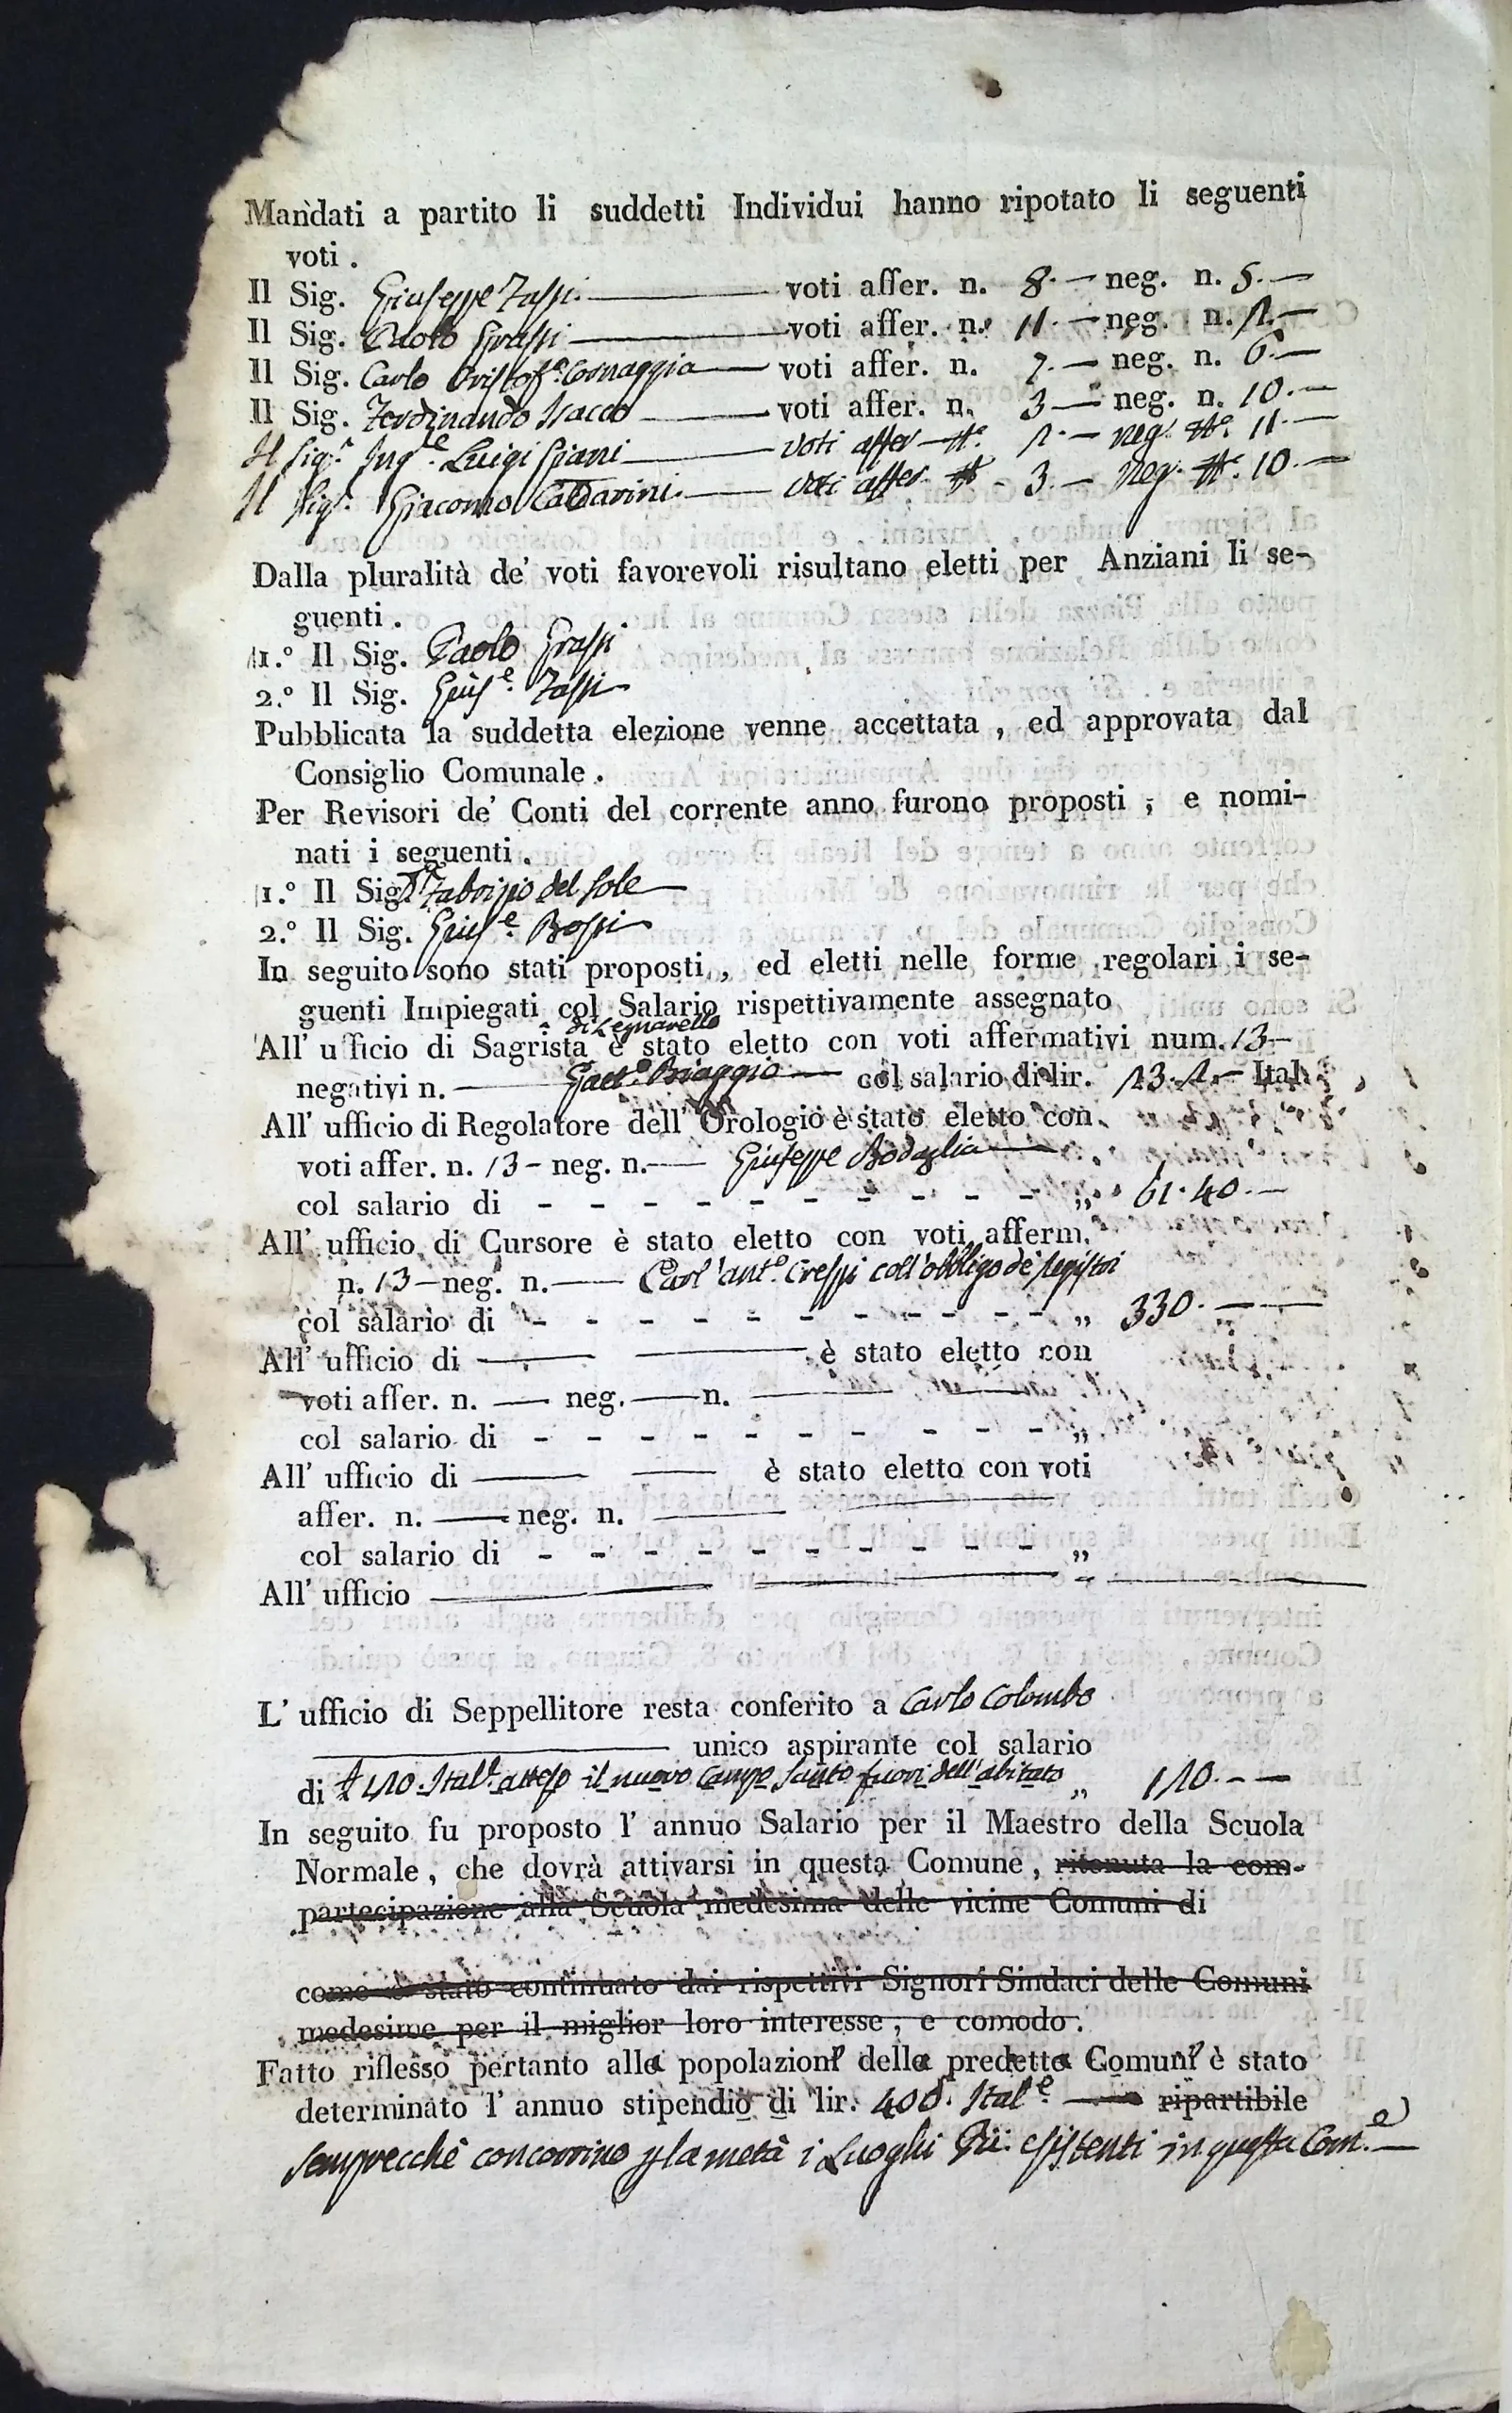 Mandati a partito li suddetti Individui hanno ripotato li seguenti
voti .
Il Sig. Giuseppe Tassi. voti affer. n. 8. — neg. n. 5. —
Il Sig. Paolo Grassi voti affer. n. 11. — neg. n. 2. —
Il Sig. Carlo Cristof.o Cornaggia voti affer. n. 7. — neg. n. 6. —
Il Sig. Ferdinando voti affer. n. 3 — neg. n. 10. —
Il Sig.r Ing.e Luigi Giani voti affer N.o 2. — neg. N.o 11. —
Il Sig.r Giacomo Caldarini. voti affer. N. 3. — neg. N.o 10. —
Dalla pluralità de' voti favorevoli risultano eletti per Anziani li se-
guenti .
1.° Il Sig. Paolo Grassi
2.° Il Sig. Gius.e Tassi
Pubblicata la suddetta elezione venne accettata , ed approvata dal
Consiglio Comunale .
Per Revisori de' Conti del corrente anno furono proposti , e nomi-
nati i seguenti .
1.° Il Sig. Fabrizio del Sole
2.° Il Sig. Gius.e Bossi
In seguito sono stati proposti , ed eletti nelle forme regolari i se-
guenti Impiegati col Salario rispettivamente assegnato
di Legnarello
All' ufficio di Sagrista è stato eletto con voti affermativi num. 13 —
negativi n. — Gaet.o Biaggio — col salario di lir. 23. 2. — Ital.
All' ufficio di Regolatore dell' Orologio è stato eletto con
voti affer. n. 13 — neg. n. — Giuseppe Bodaglia
col salario di - - - - - - - - - - „ 61. 40. —
All' ufficio di Cursore è stato eletto con voti afferm.
n. 13 — neg. n. — Carl'Ant.o Crespi coll'obbligo de'
col salario di - - - - - - - - - - „ 330. —
All' ufficio di — — è stato eletto con
voti affer. n. — neg. — n. —
col salario di - - - - - - - - - - „
All' ufficio di — — è stato eletto con voti
affer. n. — neg. n. —
col salario di - - - - - - - - - - „
All' ufficio —
L' ufficio di Seppellitore resta conferito a Carlo Colombo
unico aspirante col salario
di £ 120. Ital.e atteso il nuovo Campo Santo fuori dell'abitato „ 120. — —
In seguito fu proposto l' annuo Salario per il Maestro della Scuola
Normale , che dovrà attivarsi in questa Comune , ritenuta la com-
partecipazione alla Scuola medesima delle vicine Comuni di
come è stato continuato dai rispettivi Signori Sindaci delle Comuni
medesime per il miglior loro interesse , e comodo .
Fatto riflesso pertanto alla popolazione della predetta Comune è stato
determinato l' annuo stipendio di lir. 400. Ital.e — ripartibile
semprecchè concorrino p la metà i Luoghi Pii esistenti in questa Com.e —